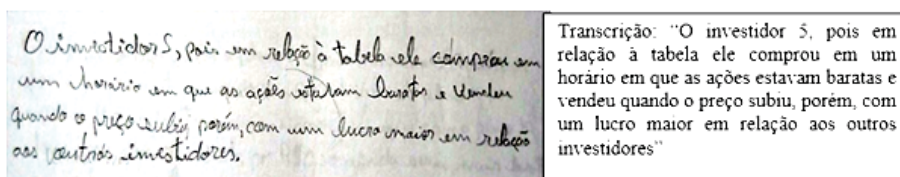 O investidor 5, pois em relação à tabela ele comprou em
um horário em que as ações estavam baratas e vendeu
quando o preço subiu, porém, com um lucro maior em relação
aos outros investidores.
Transcrição: “O investidor 5, pois em
relação à tabela ele comprou em um
horário em que as ações estavam baratas e
vendeu quando o preço subiu, porém, com
um lucro maior em relação aos outros
investidores”